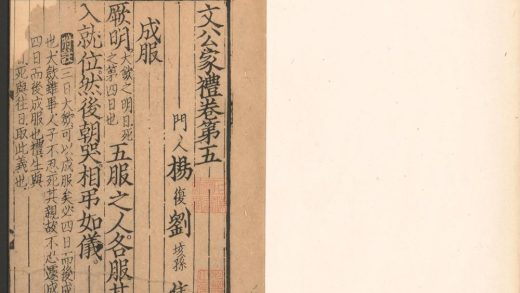 文公家禮卷第五
門人楊復劉垓孫
成服
厥明大斂之明日死之第四日也五服之人各服其
入就位然後朝哭相弔如儀
附註三日大斂可以成服矣必四日而後成
也大斂雖畢人子不忍死其親故不忍遽成
四日而後成服也禮生與
死與往日取此義也